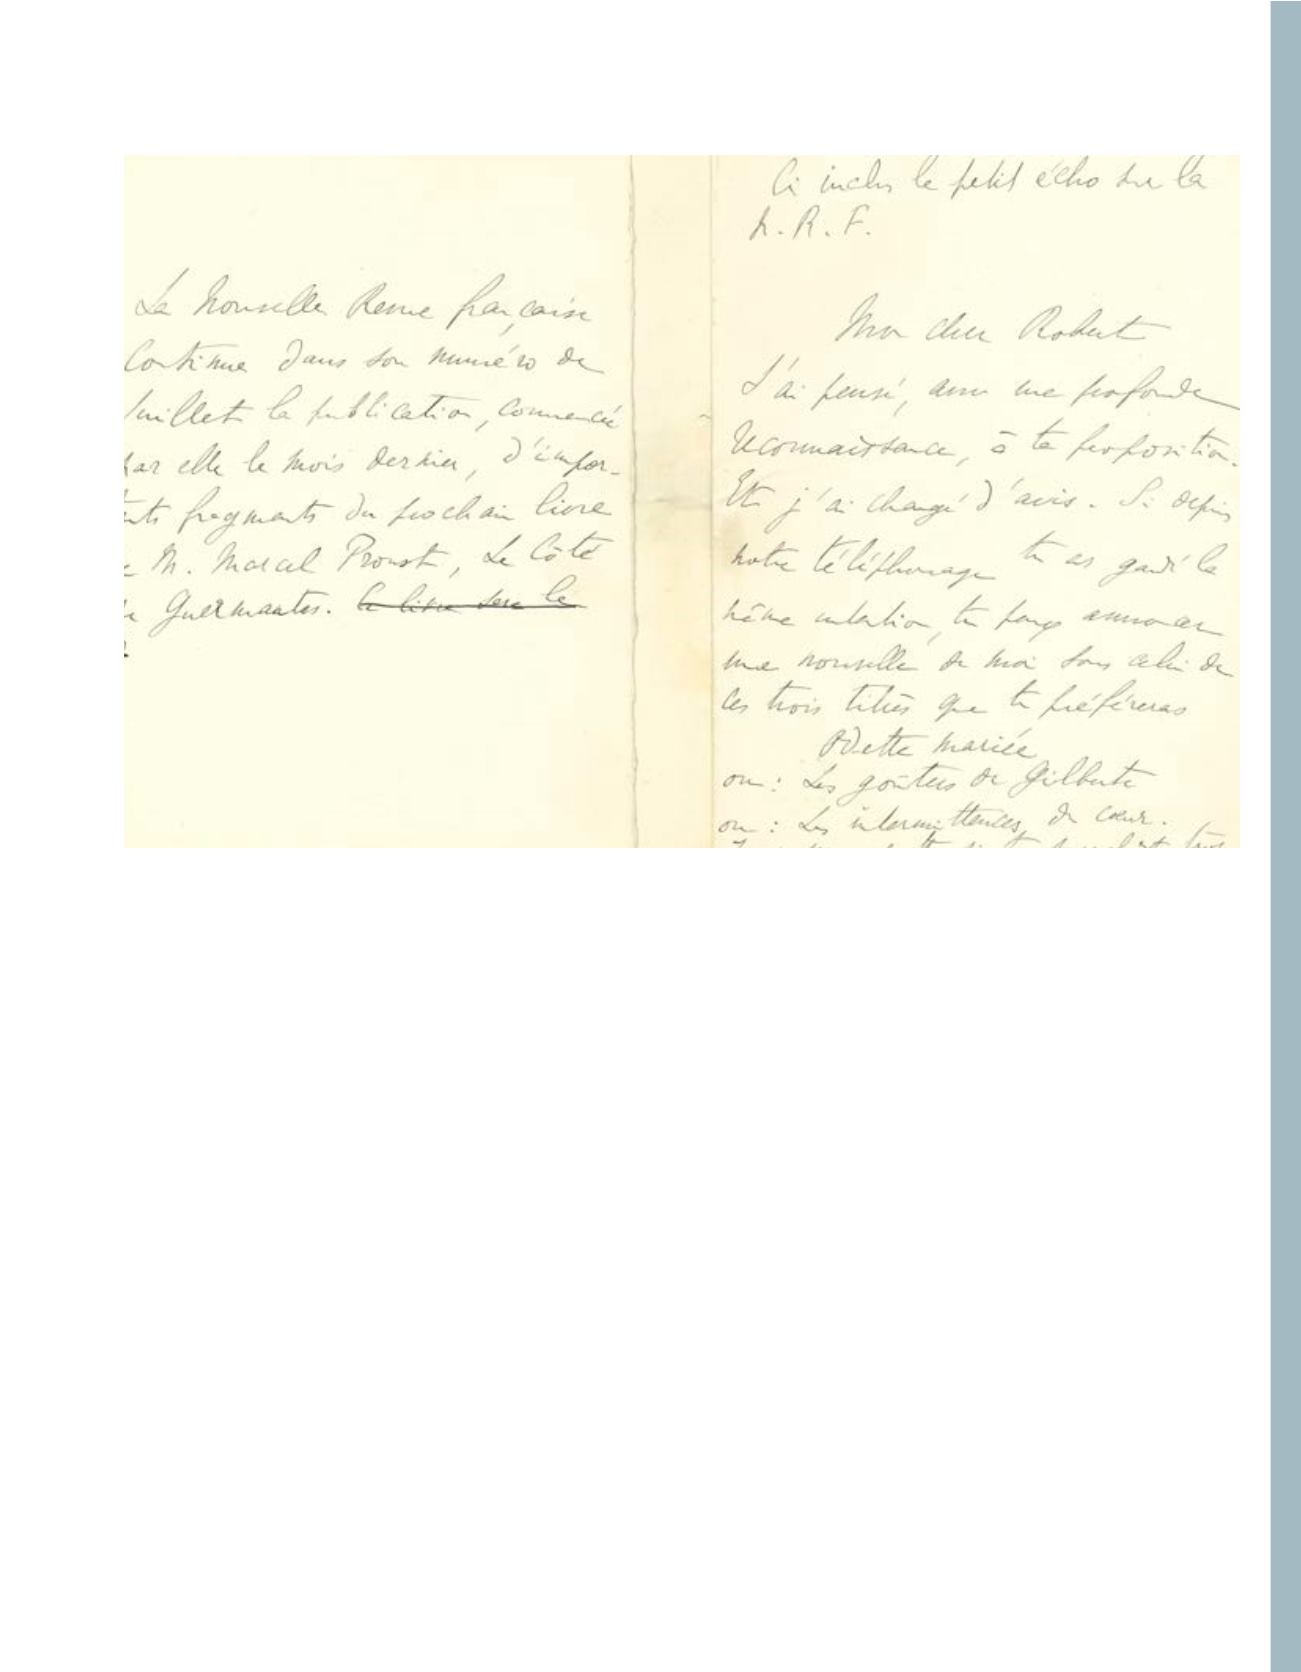 La Nouvelle Revue française
continue dans son numéro de
Juillet la publication, commencée
par elle le mois dernier, d'impor-
nts fragments du prochain livre
M. Marcel Proust, Le Côté
Guermantes. Ce livre sera le
Ci inclus le petit écho sur la
N. R. F.
Mon cher Robert
J'ai pensé, avec une profonde
reconnaissance, à ta proposition.
Et j'ai changé d'avis. Si depuis
notre téléphonage tu as gardé la
même intention, tu peux annoncer
une nouvelle de moi sous celui de
ces trois titres que tu préféreras
Odette mariée
ou : Les goûters de Gilberte
ou : Les intermittences du cœur.